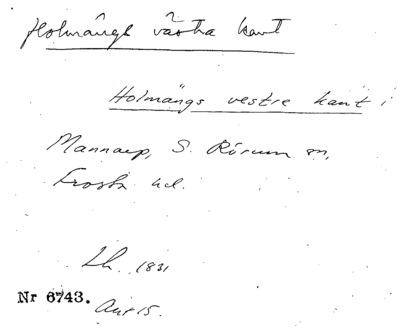 Holmängs västra kant
Holmängs vestre kant i
Mannarp, S. Rörum sn,
Frosta hd.
Lh. 1831
Nr 6743.
Akt 15.